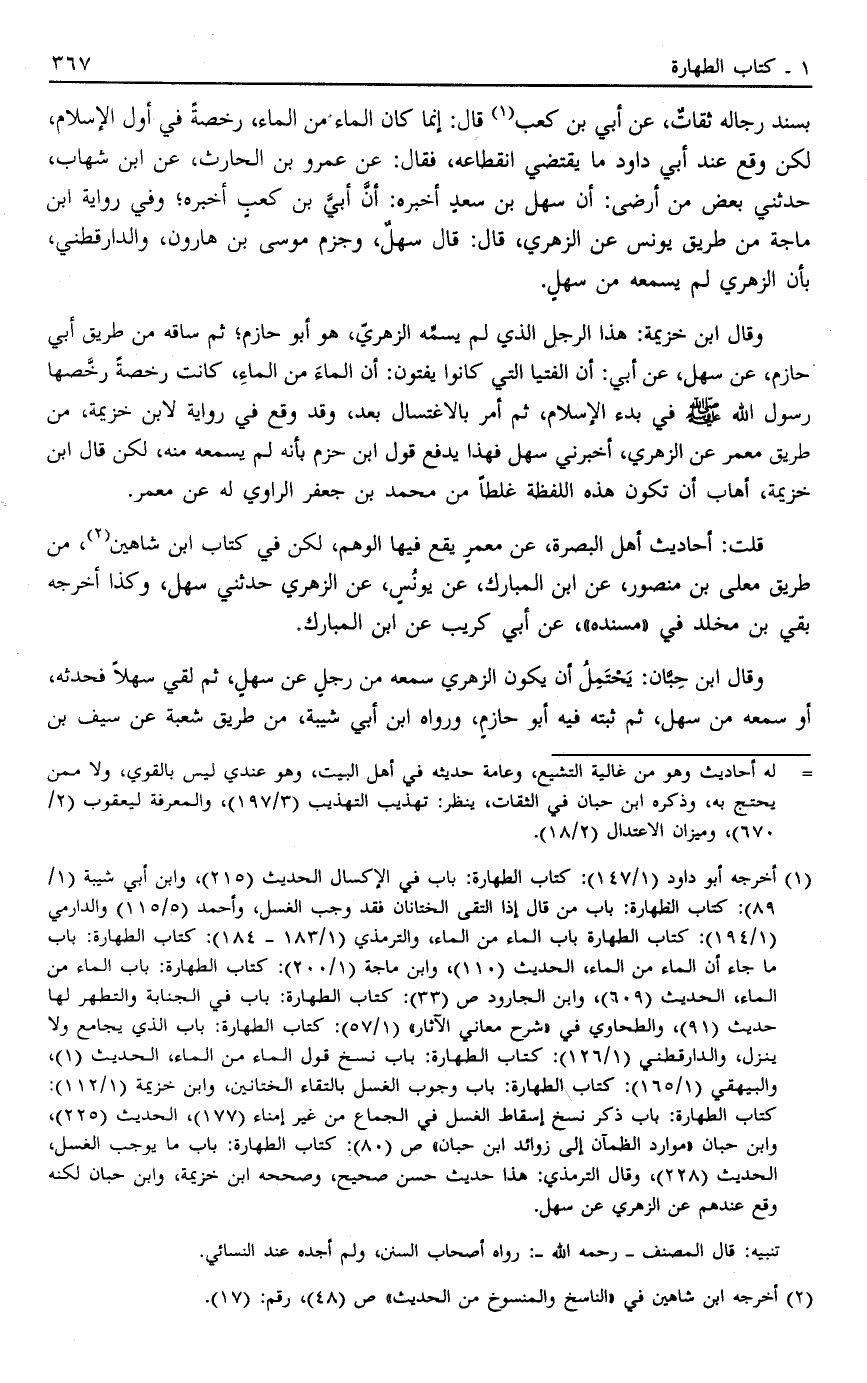 ١ ـ كتاب الطهارة
٣٦٧
بسند رجاله ثقاتٌ، عن أبي بن كعب(١) قال: إنما كان الماء من الماء، رخصةً في أول الإسلام،
لكن وقع عند أبي داود ما يقتضي انقطاعه، فقال: عن عمرو بن الحارث، عن ابن شهاب،
حدثني بعض من أرضى: أن سهل بن سعدٍ أخبره: أنَّ أبيَّ بن كعبٍ أخبره؛ وفي رواية ابن
ماجة من طريق يونس عن الزهري، قال: قال سهلٌ، وجزم موسى بن هارون، والدارقطني،
بأن الزهري لم يسمعه من سهلٍ.
وقال ابن خزيمة: هذا الرجل الذي لم يسمِّه الزهريّ، هو أبو حازم؛ ثم ساقه من طريق أبي
حازم، عن سهل، عن أبي: أن الفتيا التي كانوا يفتون: أن الماءَ من الماءِ، كانت رخصةً رخَّصها
رسول الله ﷺ في بدء الإسلام، ثم أمر بالاغتسال بعد، وقد وقع في رواية لابن خزيمة، من
طريق معمر عن الزهري، أخبرني سهل فهذا يدفع قول ابن حزم بأنه لم يسمعه منه، لكن قال ابن
خزيمة، أهاب أن تكون هذه اللفظة غلطاً من محمد بن جعفر الراوي له عن معمر.
قلت: أحاديث أهل البصرة، عن معمرٍ يقع فيها الوهم، لكن في كتاب ابن شاهين(٢)، من
طريق معلى بن منصور، عن ابن المبارك، عن يونُسٍ، عن الزهري حدثني سهل، وكذا أخرجه
بقي بن مخلد في «مسنده»، عن أبي كريب عن ابن المبارك.
وقال ابن حِبَّان: يَحْتَمِلُ أن يكون الزهري سمعه من رجلٍ عن سهلٍ، ثم لقي سهلاً فحدثه،
أو سمعه من سهل، ثم ثبته فيه أبو حازمٍ، ورواه ابن أبي شيبة، من طريق شعبة عن سيف بن
= له أحاديث وهو من غالية التشيع، وعامة حديثه في أهل البيت، وهو عندي ليس بالقوي، ولا ممن
يحتج به، وذكره ابن حبان في الثقات، ينظر: تهذيب التهذيب (١٩٧/٣)، والمعرفة ليعقوب (٢/
٦٧٠)، وميزان الاعتدال (١٨/٢).
(١) أخرجه أبو داود (١٤٧/١): كتاب الطهارة: باب في الإكسال الحديث (٢١٥)، وابن أبي شيبة (١/
٨٩): كتاب الطهارة: باب من قال إذا التقى الختانان فقد وجب الغسل، وأحمد (١١٥/٥) والدارمي
(١٩٤/١): كتاب الطهارة باب الماء من الماء، والترمذي (١٨٣/١ ـ ١٨٤): كتاب الطهارة: باب
ما جاء أن الماء من الماء، الحديث (١١٠)، وابن ماجة (٢٠٠/١): كتاب الطهارة: باب الماء من
الماء، الحديث (٦٠٩)، وابن الجارود ص (٣٣): كتاب الطهارة: باب في الجنابة والتطهر لها
حديث (٩١)، والطحاوي في «شرح معاني الآثار» (٥٧/١): كتاب الطهارة: باب الذي يجامع ولا
ينزل، والدارقطني (١٢٦/١): كتاب الطهارة: باب نسخ قول الماء من الماء، الحديث (١)،
والبيهقي (١٦٥/١): كتاب الطهارة: باب وجوب الغسل بالتقاء الختانين، وابن خزيمة (١١٢/١):
كتاب الطهارة: باب ذكر نسخ إسقاط الغسل في الجماع من غير إمناء (١٧٧)، الحديث (٢٢٥)،
وابن حبان «موارد الظمآن إلى زوائد ابن حبان» ص (٨٠): كتاب الطهارة: باب ما يوجب الغسل،
الحديث (٢٢٨)، وقال الترمذي: هذا حديث حسن صحيح، وصححه ابن خزيمة، وابن حبان لكنه
وقع عندهم عن الزهري عن سهل.
تنبيه: قال المصنف ـ رحمه الله ـ: رواه أصحاب السنن، ولم أجده عند النسائي.
(٢) أخرجه ابن شاهين في «الناسخ والمنسوخ من الحديث» ص (٤٨)، رقم: (١٧).